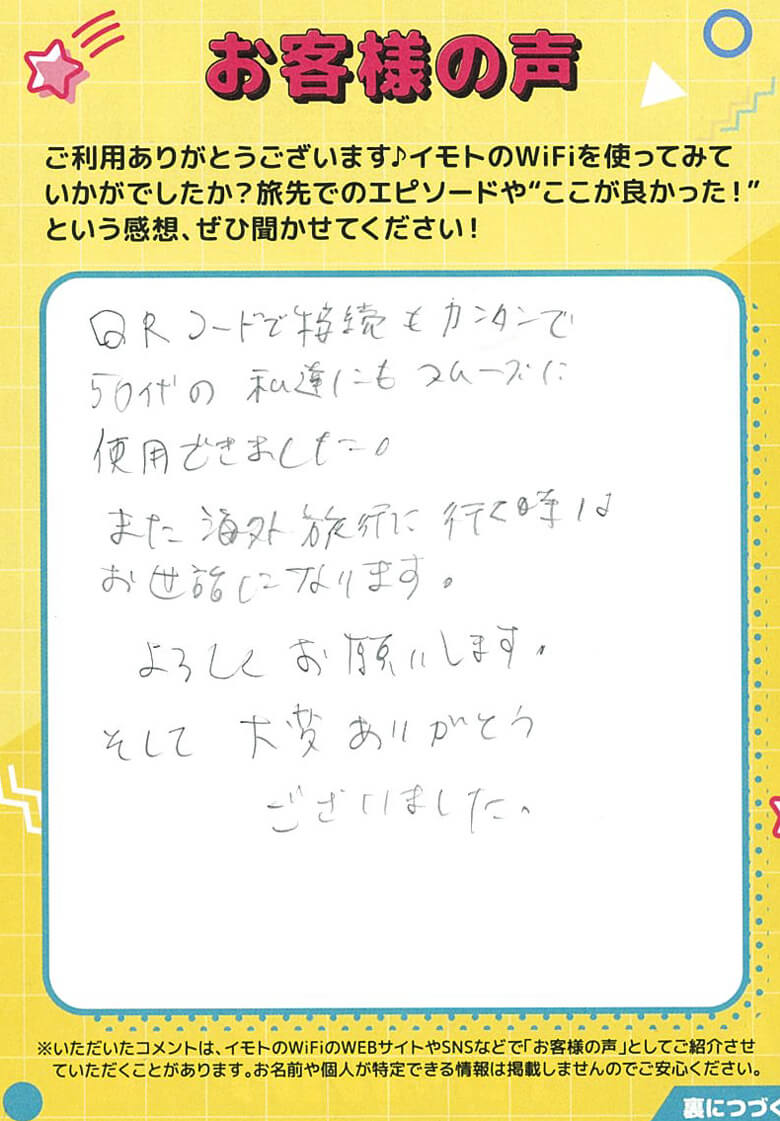 お客様の声
ご利用ありがとうございます♪イモトのWiFiを使ってみて
いかがでしたか?旅先でのエピソードや“ここが良かった!”
という感想、ぜひ聞かせてください!
QRコードで接続もカンタンで
50代の私達にもスムーズに
使用できました。
また海外旅行に行く時は
お世話になります。
よろしくお願いします。
そして大変ありがとう
ございました。
※いただいたコメントは、イモトのWiFiのWEBサイトやSNSなどで「お客様の声」としてご紹介させ
ていただくことがあります。お名前や個人が特定できる情報は掲載しませんのでご安心ください。
裏につづく